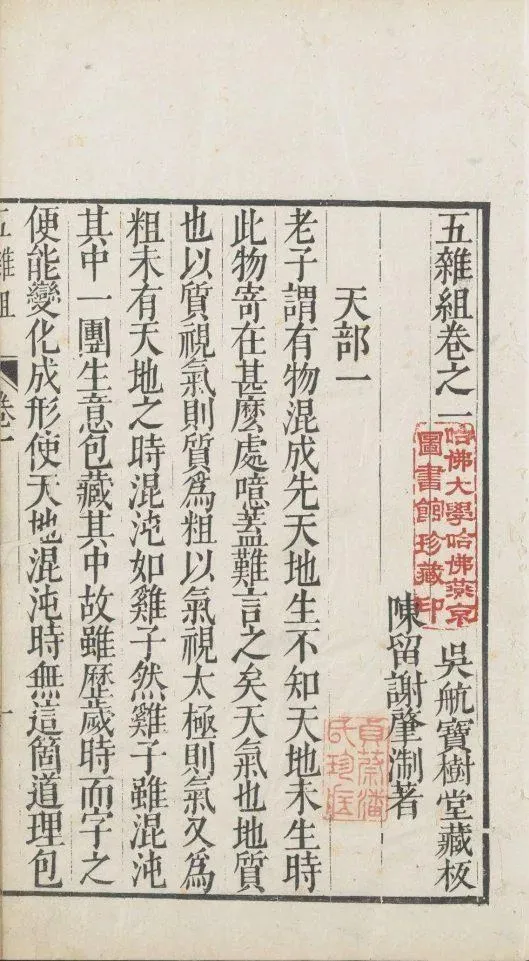 五雜組卷之一
吳航寶樹堂藏板
哈佛大學哈佛燕京
圖書館珍藏印
陳留謝肇淛著
天部一
老子謂有物混成先天地生不知天地未生時
此物寄在甚麽處噫蓋難言之矣天氣也地質
也以質視氣則質爲粗以氣視太極則氣又爲
粗未有天地之時混沌如雞子然雞子雖混沌
其中一團生意包藏其中故雖歷歲時而字之
便能變化成形使天地混沌時無這箇道理包
五雜組
卷一
一